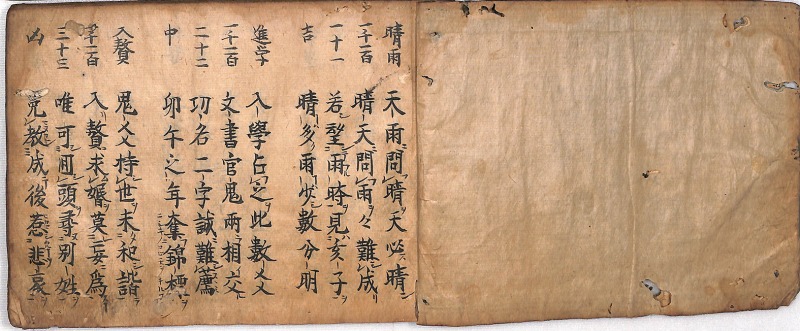 晴雨 天雨問晴天必晴
一千一百 晴天問雨々難成
一十一 若望雨時見亥子
吉 晴多雨少數分明
進学 入學占之此數爻
一千一百 文書官鬼兩相交
二十二 功名二字誠難薦
中 卯午之年奪錦標
入贅 鬼爻持世未和諧
一千一百 入贅求婚莫妄為
三十三 唯可回頭尋別姓
凶 免教成後惹悲哀